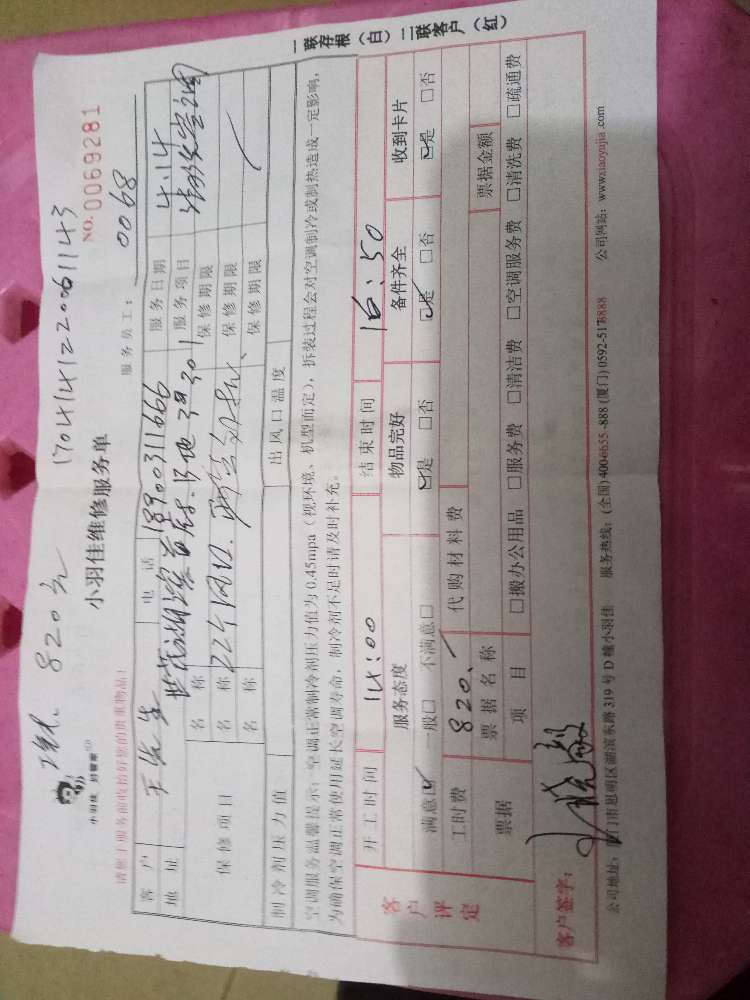 820元 1704141220061143
小羽佳维修服务单
NO.0069281
小羽佳 好管家
请您于服务前收拾好您的贵重物品!
服务员工: 0068
客户 王先生 电话 18900311666 服务日期 4.14
地址 301 服务项目
保修项目 名称 22个风口、 保修期限
名称 保修期限
名称 保修期限
制冷剂压力值 出风口温度
空调服务温馨提示:空调正常制冷剂压力值为0.45mpa(视环境、机型而定),拆装过程会对空调制冷或制热造成一定影响,
为确保空调正常使用延长空调寿命,制冷剂不足时请及时补充。
客户评定
开工时间 14:00 结束时间 16:50
服务态度 物品完好 备件齐全 收到卡片
满意☑ 一般□ 不满意□ ☑是 □否 ☑是 □否 ☑是 □否
工时费 820. 代购材料费
票据 票据名称 票据金额
项目 □搬办公用品 □服务费 □清洁费 □空调服务费 □清洗费 □疏通费
客户签字:
公司地址:厦门市思明区湖滨东路319号D幢小羽佳 服务热线:(全国)4006655-888 (厦门)0592-5178888 公司网站:www.xiaoyujia.com
一联存根(白)二联客户(红)